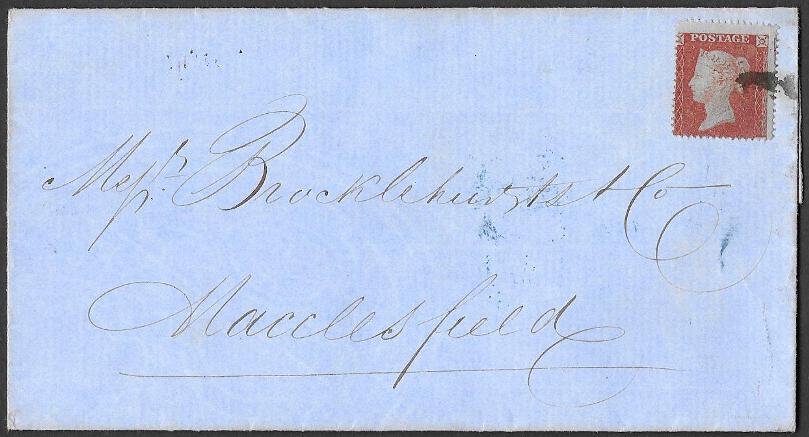 POSTAGE
Messrs. Brocklehursts & Co
Macclesfield